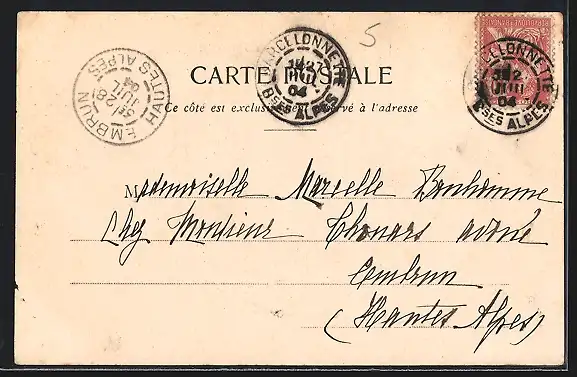 5
RÉPUBLIQUE FRANÇAISE
BARCELONNETTE
27
JUIL
04
BSES ALPES
BARCELONNETTE
JUIL
04
BSES ALPES
EMBRUN HAUTES ALPES
28
JUIL
04
CARTE POSTALE
Ce côté est exclusivement réservé à l'adresse
Mademoiselle Marcelle Bonhomme
Chez Monsieur Thouars avoué
Embrun
(Hautes Alpes)